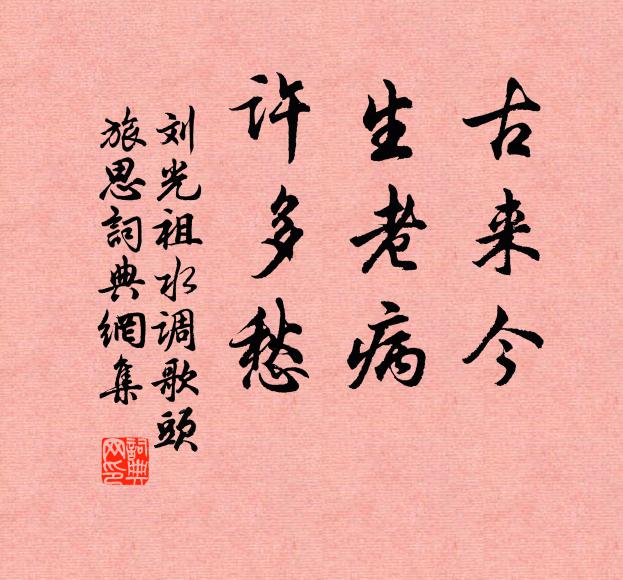 古来今
生老病
许多愁
刘光祖水调歌頭
旅思詞典網集
詞典
网印